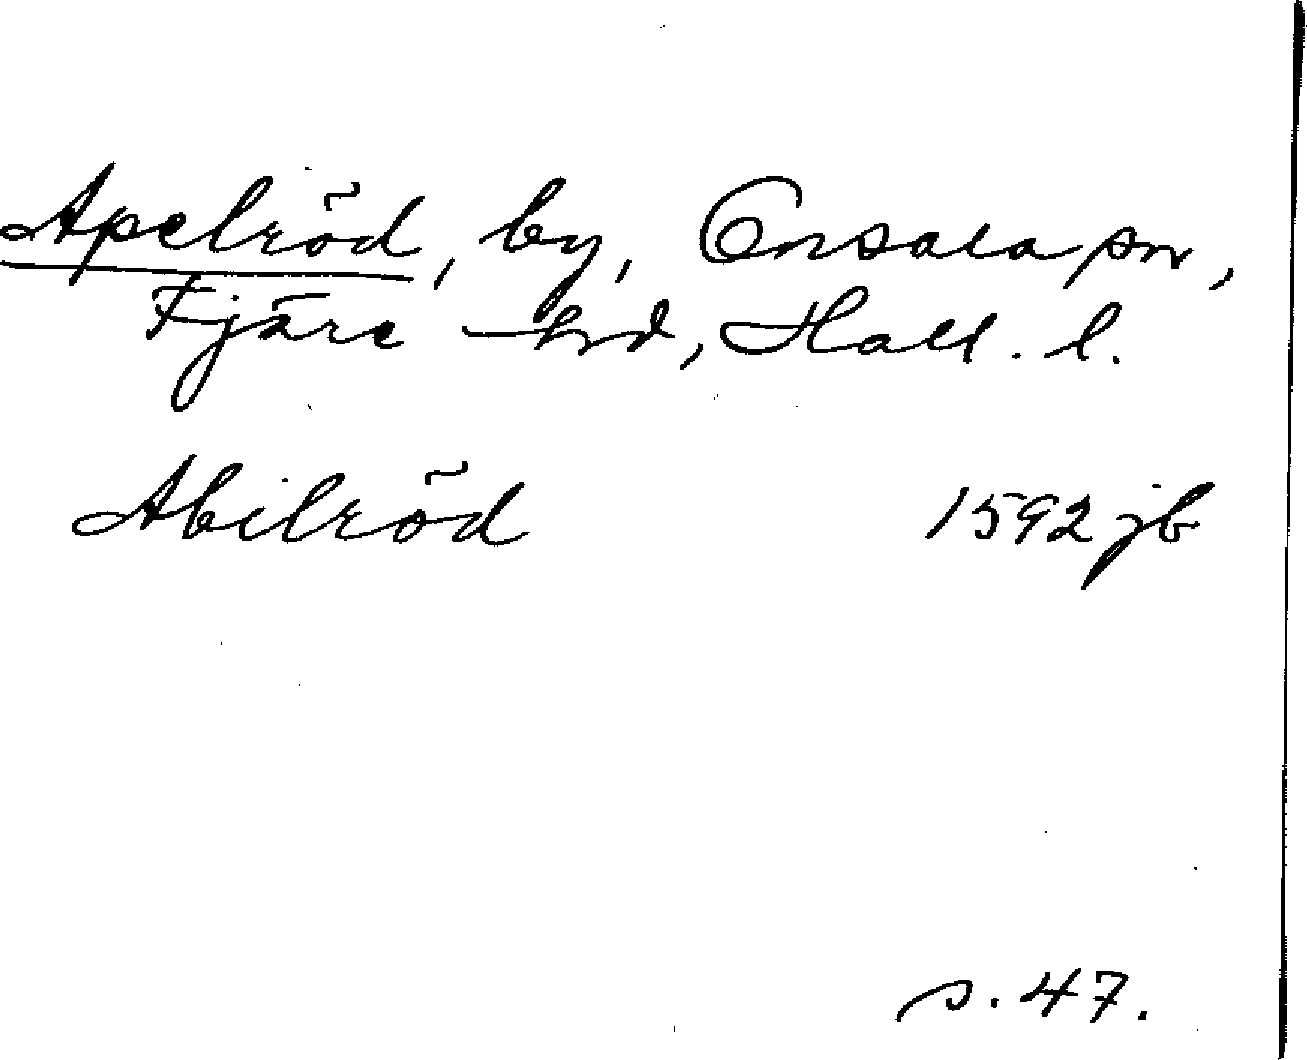 Apelröd, by, Onsala sn,
Fjäre hd, Hall. l.
Abilröd 1592 jb
s. 47.